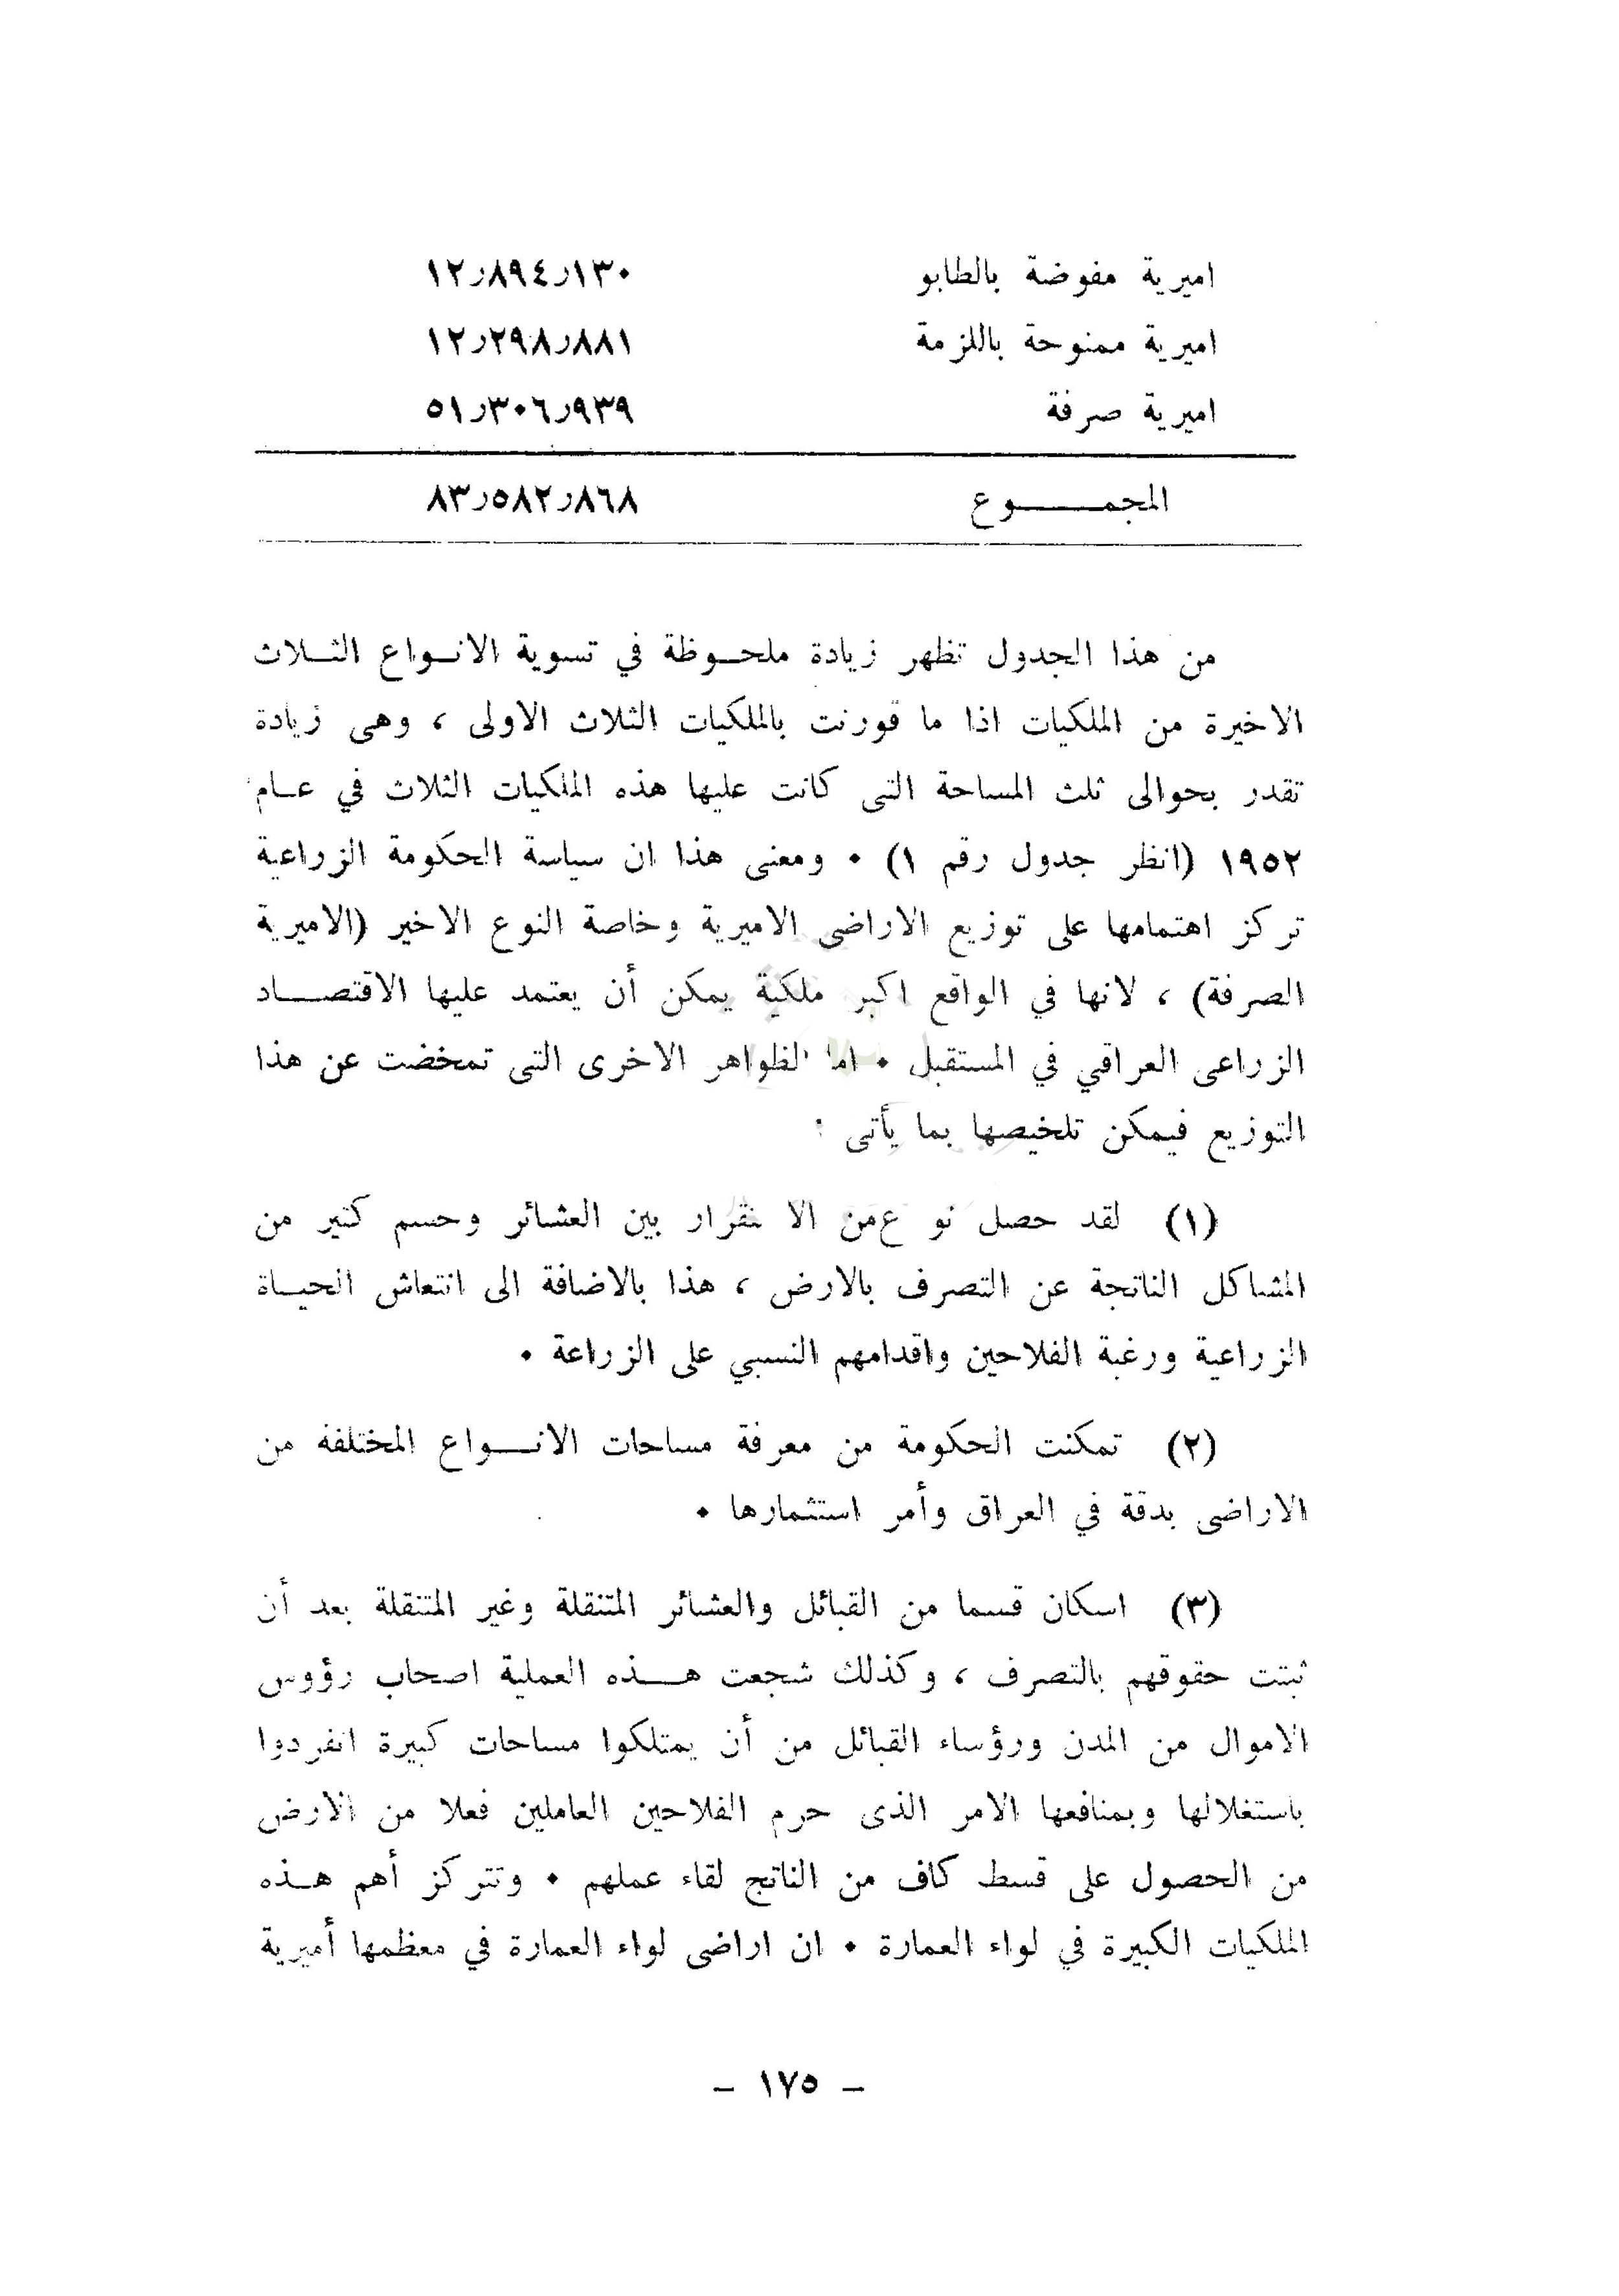 اميرية مفوضة بالطابو ١٢ر٨٩٤ر١٣٠
اميرية ممنوحة باللزمة ١٢ر٢٩٨ر٨٨١
اميرية صرفة ٥١ر٣٠٦ر٩٣٩
المجمـــــوع ٨٣ر٥٨٢ر٨٦٨
من هذا الجدول تظهر زيادة ملحـوظة في تسوية الانـواع الثـلاث
الاخيرة من الملكيات اذا ما قورنت بالملكيات الثلاث الاولى ، وهى زيادة
تقدر بحوالى ثلث المساحة التى كانت عليها هذه الملكيات الثلاث في عـام
١٩٥٢ (انظر جدول رقم ١) ٠ ومعنى هذا ان سياسة الحكومة الزراعية
تركز اهتمامها على توزيع الاراضى الاميرية وخاصة النوع الاخير (الاميرية
الصرفة) ، لانها في الواقع اكبر ملكية يمكن أن يعتمد عليها الاقتصـــاد
الزراعى العراقي في المستقبل ٠ اما الظواهر الاخرى التى تمخضت عن هذا
التوزيع فيمكن تلخيصها بما يأتى :
(١) لقد حصل نو ع من الا نقرار بين العشائر وحسم كثير من
المشاكل الناتجة عن التصرف بالارض ، هذا بالاضافة الى انتعاش الحيـاة
الزراعية ورغبة الفلاحين واقدامهم النسبي على الزراعة ٠
(٢) تمكنت الحكومة من معرفة مساحات الانـــواع المختلفة من
الاراضى بدقة في العراق وأمر استثمارها ٠
(٣) اسكان قسما من القبائل والعشائر المتنقلة وغير المتنقلة بعد أن
ثبتت حقوقهم بالتصرف ، وكذلك شجعت هـــذه العملية اصحاب رؤوس
الاموال من المدن ورؤساء القبائل من أن يمتلكوا مساحات كبيرة انفردوا
باستغلالها وبمنافعها الامر الذى حرم الفلاحين العاملين فعلا من الارض
من الحصول على قسط كاف من الناتج لقاء عملهم ٠ وتتركز أهم هـذه
الملكيات الكبيرة في لواء العمارة ٠ ان اراضى لواء العمارة في معظمها أميرية
– ١٧٥ –